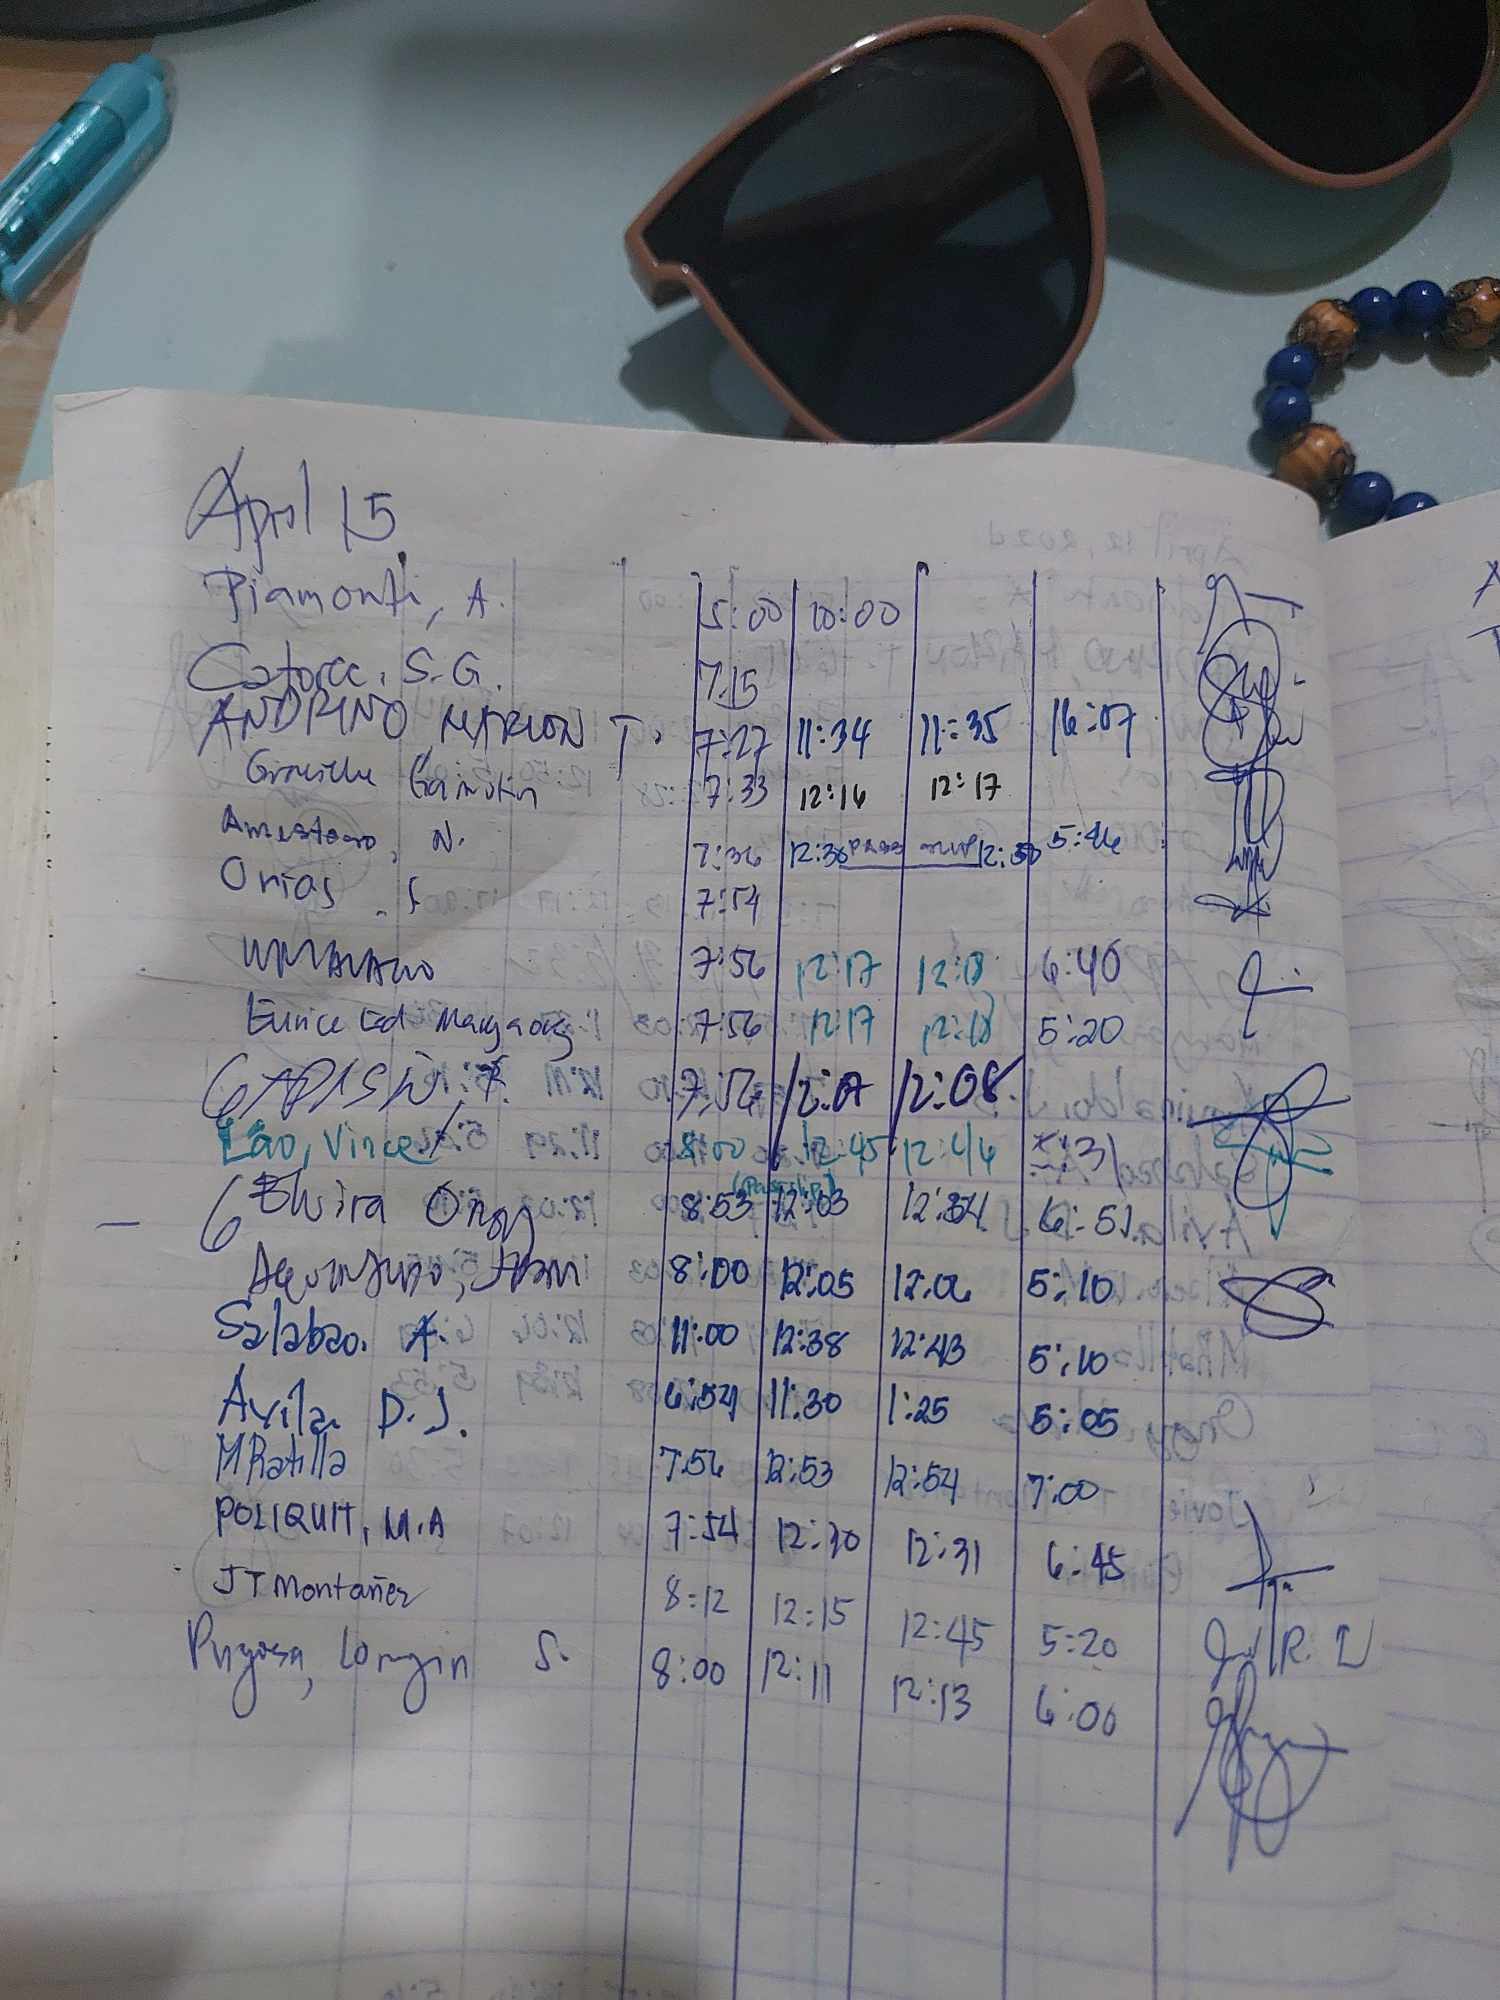 April 15
Piamonte, A. 5:00 10:00
Catorce, S.G. 7:15
ANDRINO MARLON T. 7:27 11:34 11:35 16:07
7:33 12:16 12:17
N. 7:36 12:38 PASS SLIP 12:50 5:46
Orias, S 7:54
7:56 12:17 12:18 6:40
Eunice Ced Mangaong 7:56 12:17 12:18 5:20
CAPISIN, F. 7:56 12:07 12:08
Lao, Vince 8:00 12:45 12:46
(Pass slip)
Elvira Ongy 8:53 12:03 12:34 6:51
8:00 12:05 12:06 5:10
Salabao. A. 11:00 12:38 12:43 5:10
Avila D.J. 6:54 11:30 1:25 5:05
MRatilla 7:56 12:53 12:54 7:00
POLIQUIT, M.A 7:54 12:30 12:31 6:45
JT Montañez 8:12 12:15 12:45 5:20
Pugosa, Longin S. 8:00 12:11 12:13 6:00